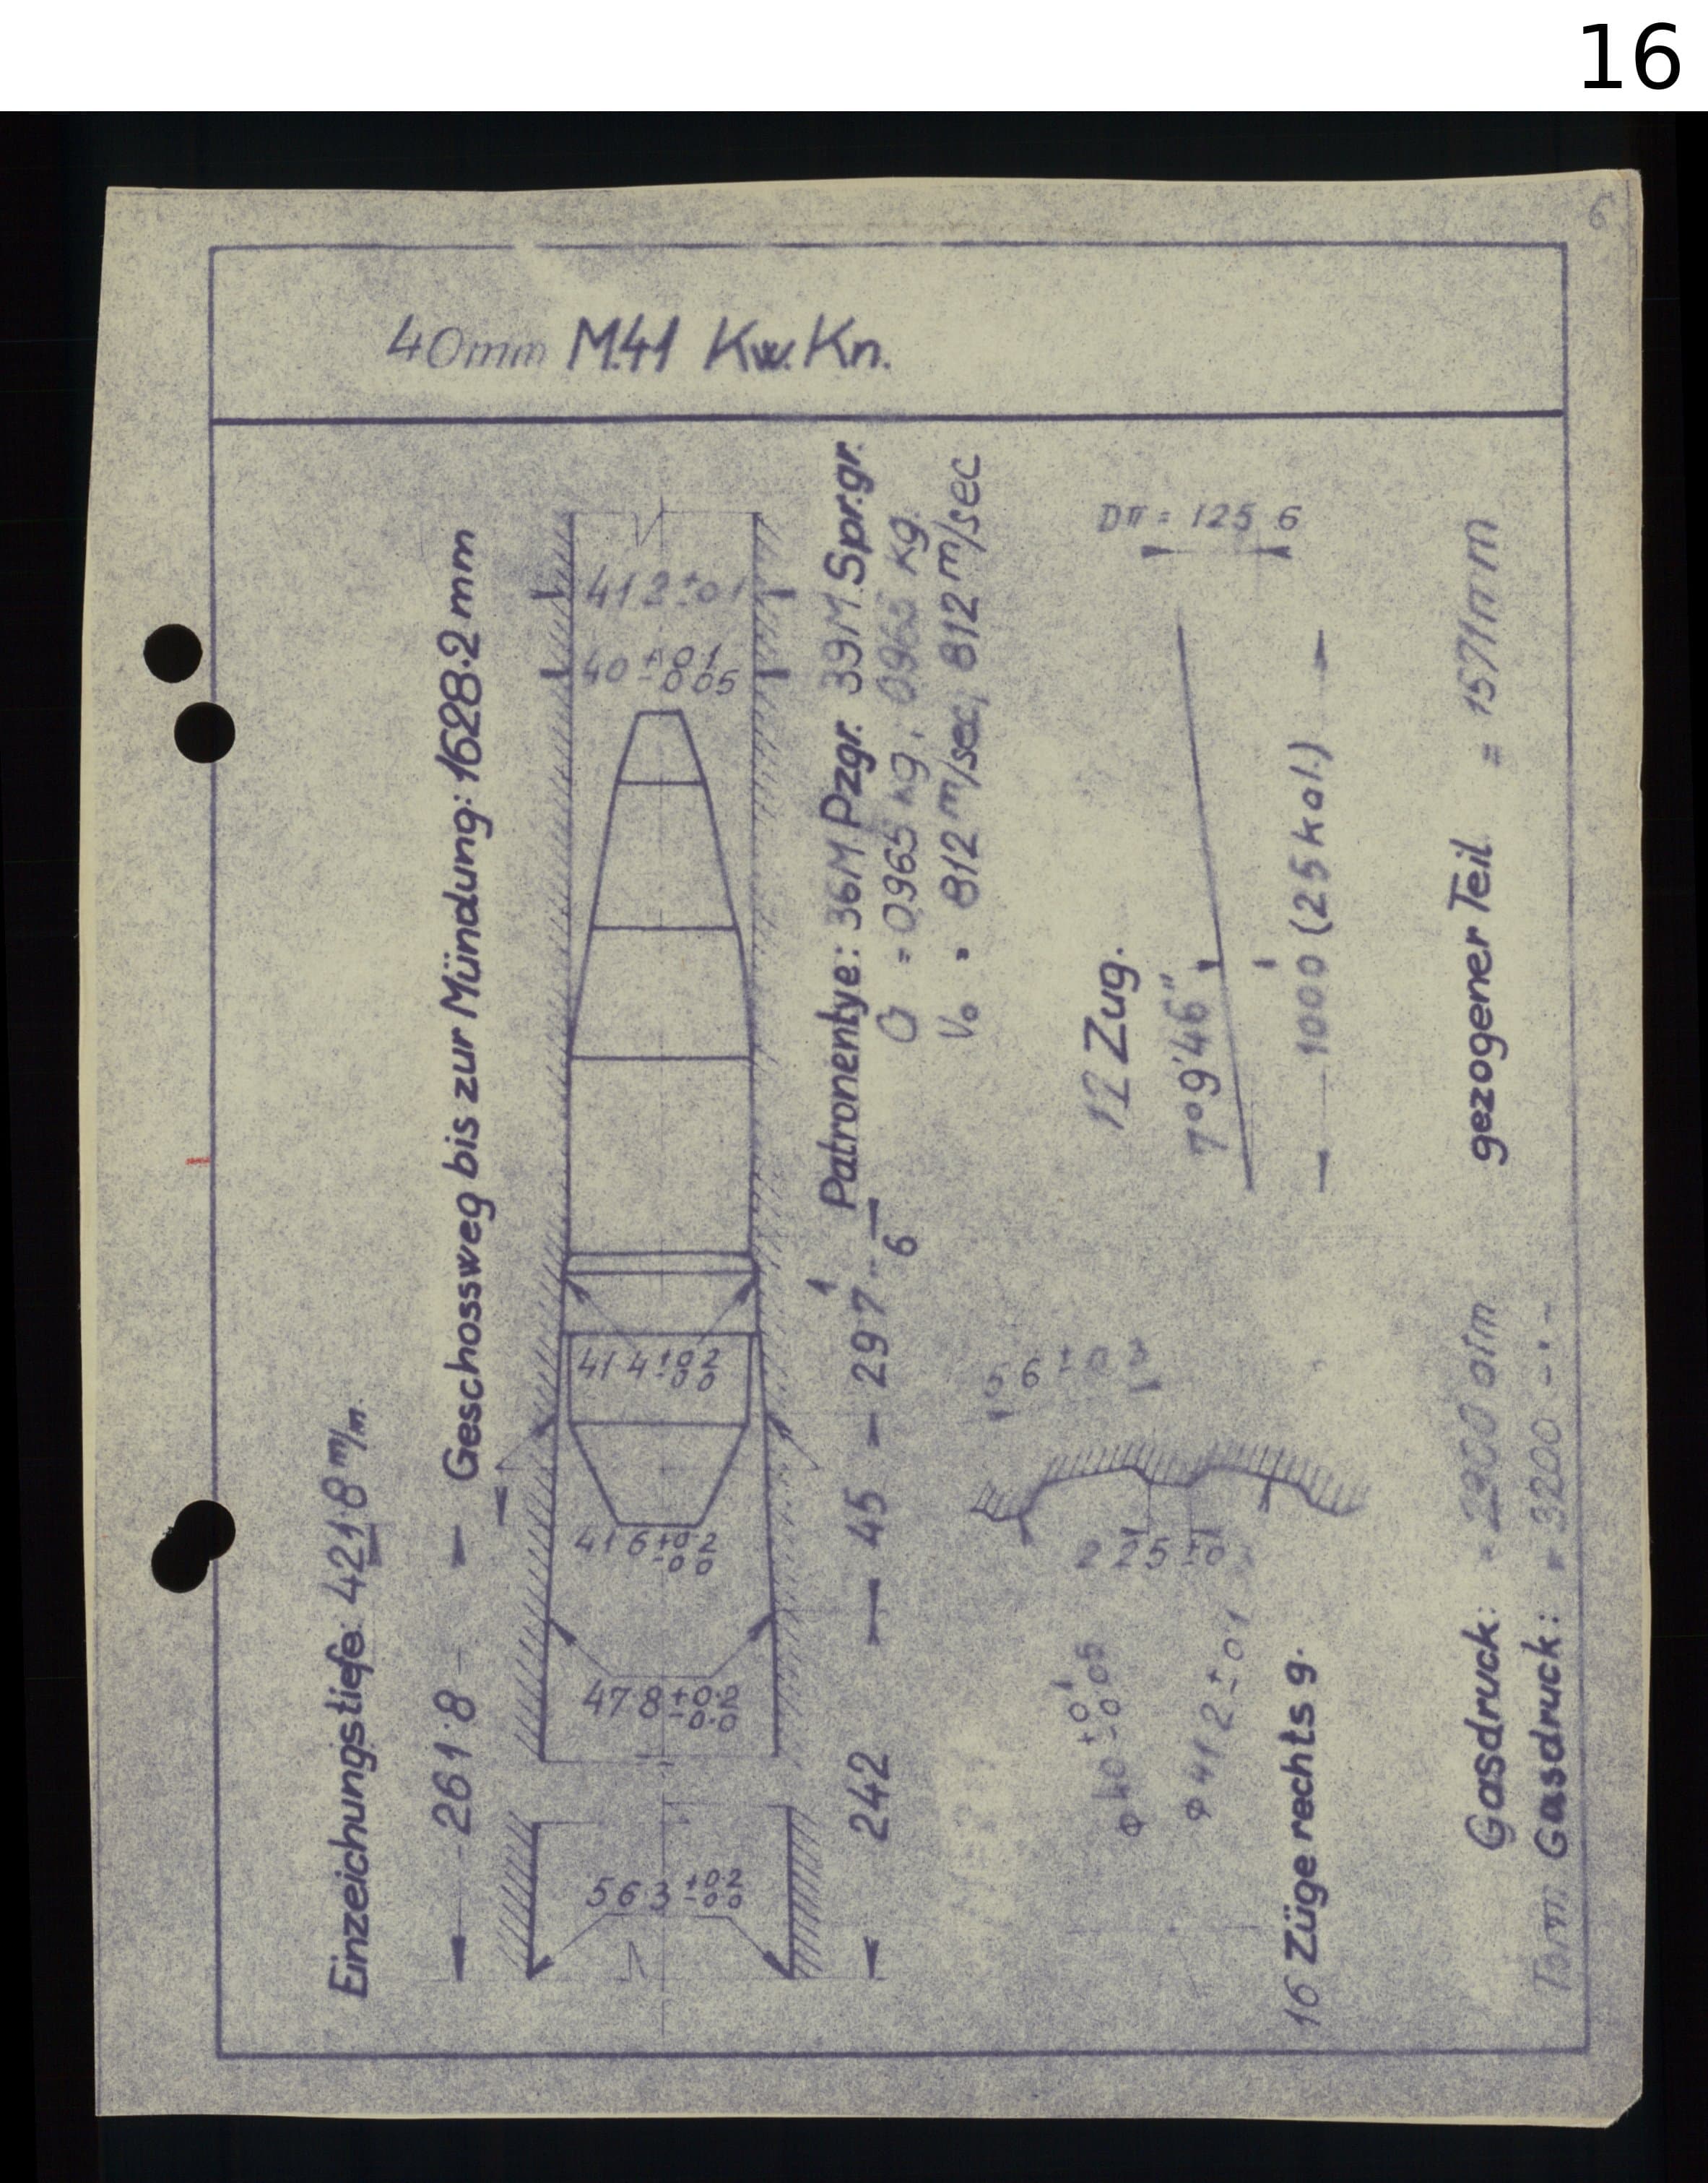 16
6
40mm M.41 Kw. Kn.
Einzeichungstiefe: 421·8 m/m.
Geschossweg bis zur Mündung: 1628·2 mm
261·8
56 3 +0 2 -0 0
47 8 +0·2 -0·0
41 6 +0·2 -0 0
41 4 +0 2 -0 0
40 +0 1 -0 05
41 2 ±0 1
242
45
297
1
6
Patronentye: 36M Pzgr. 39M Spr.gr.
G = 0,965 kg, 0,965 kg.
V₀ = 812 m/sec, 812 m/sec
φ 40 +0 1 -0 05
φ 41 2 ±0 1
2 25 ±0 1
16 Züge rechts g.
12 Zug.
7°9'46"
Dπ = 125 6
1000 (25 kal.)
Gasdruck: = 2900 atm
gezogener Teil = 1571mm
Gasdruck: = 3200 - · -